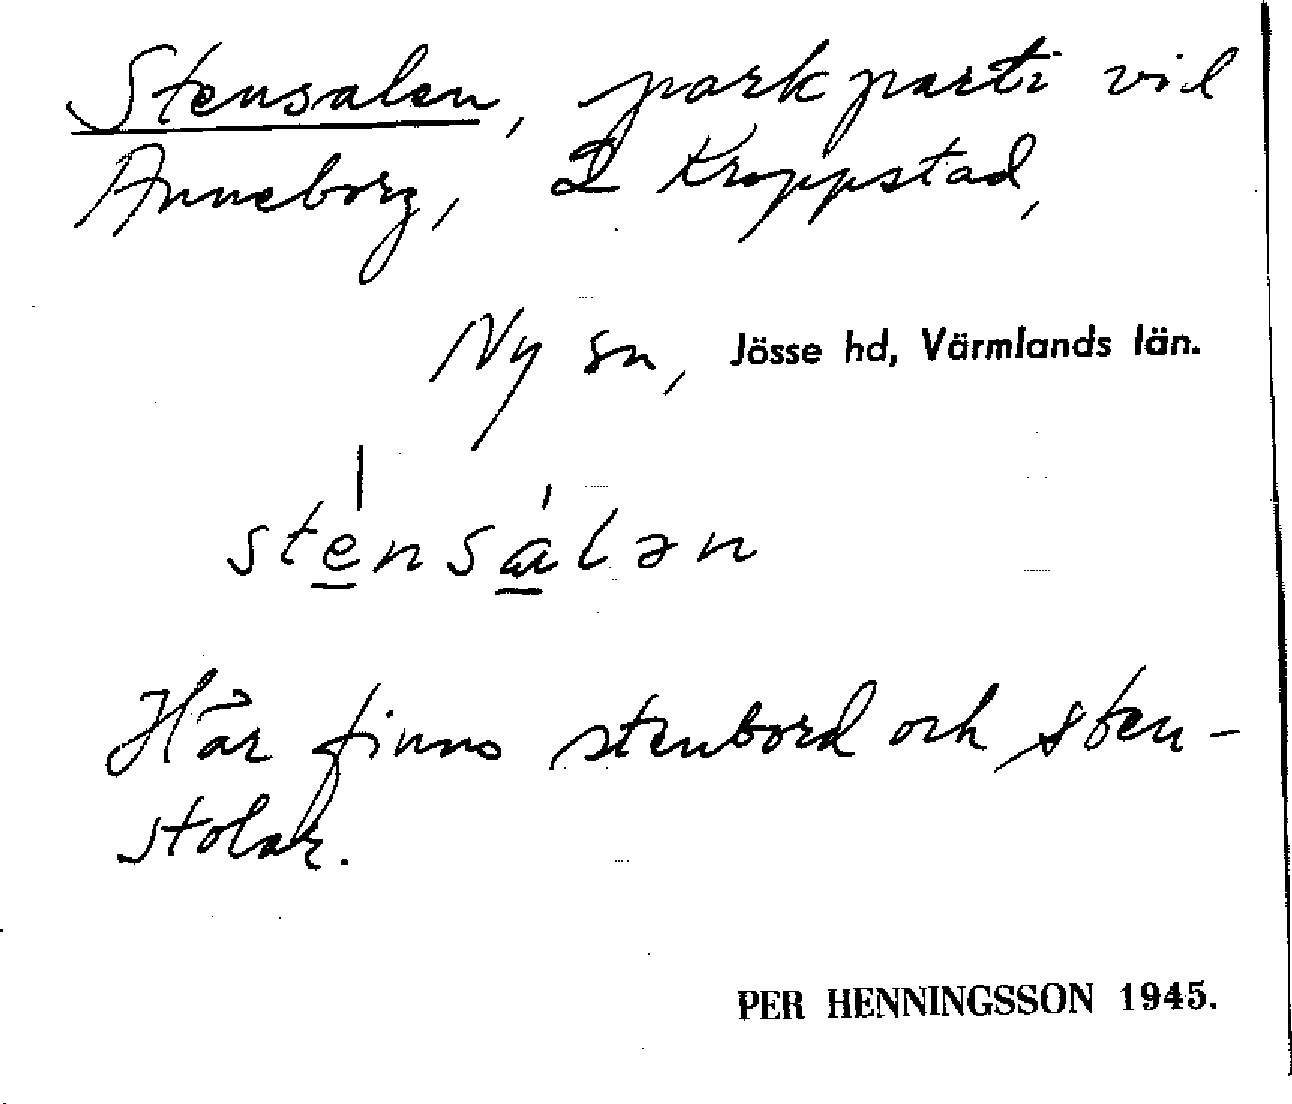 Stensalen, parkparti vid
Anneborg, I Kroppstad,
Ny sn, Jösse hd, Värmlands län.
sténsálən
Här finns stenbord och sten-
stolar.
PER HENNINGSSON 1945.